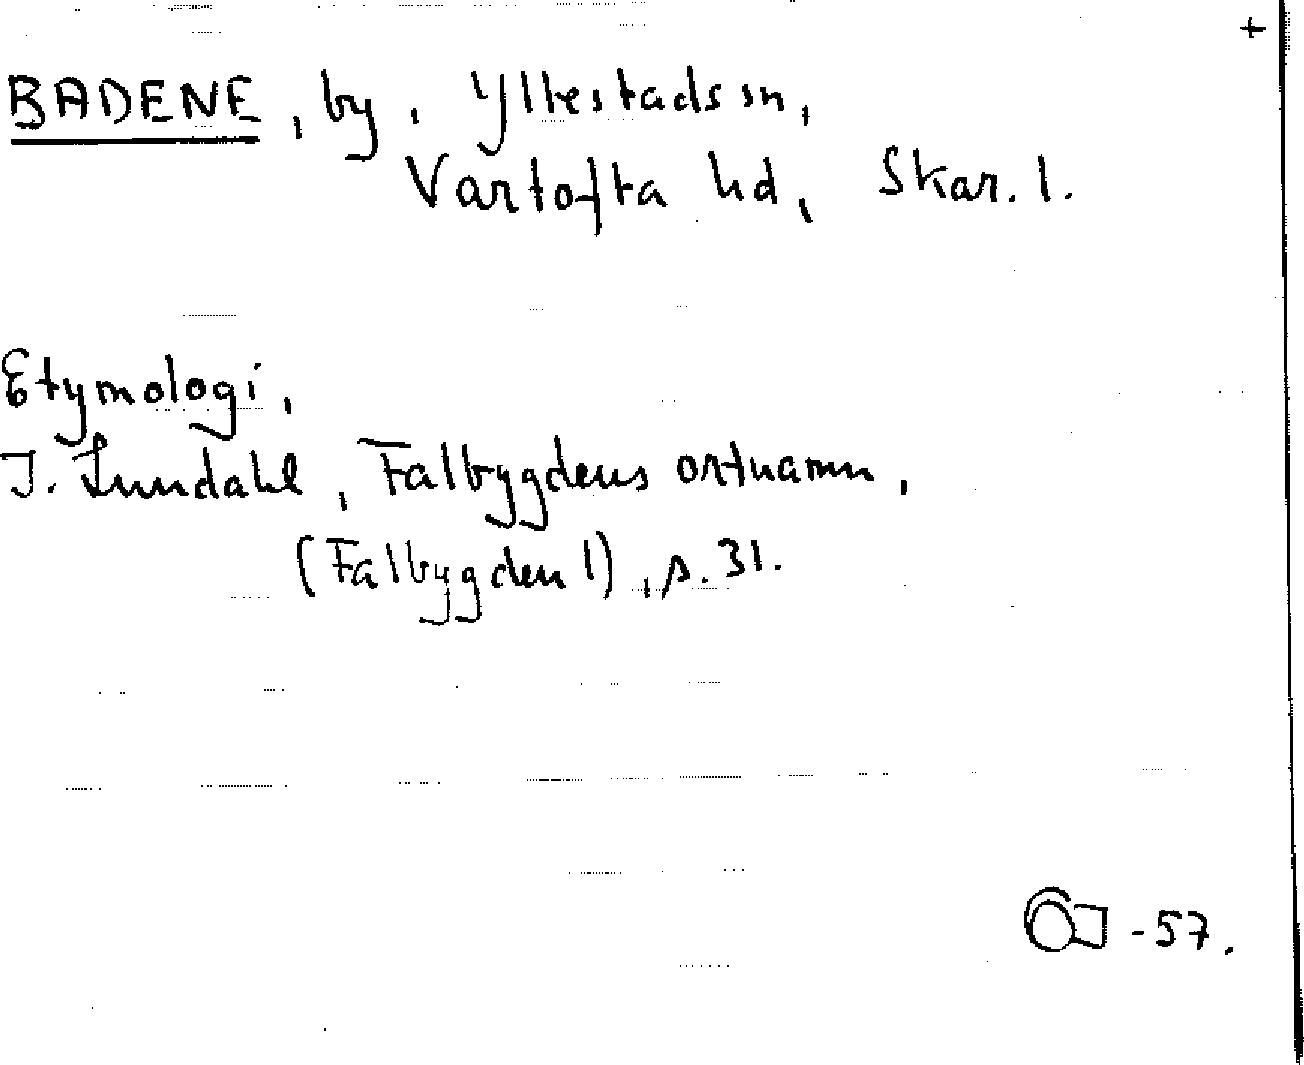 +
BADENE, by, Yllestads sn,
Vartofta hd, Skar. l.
Etymologi,
I. Lundahl, Falbygdens ortnamn,
(Falbygden 1), s. 31.
-57.